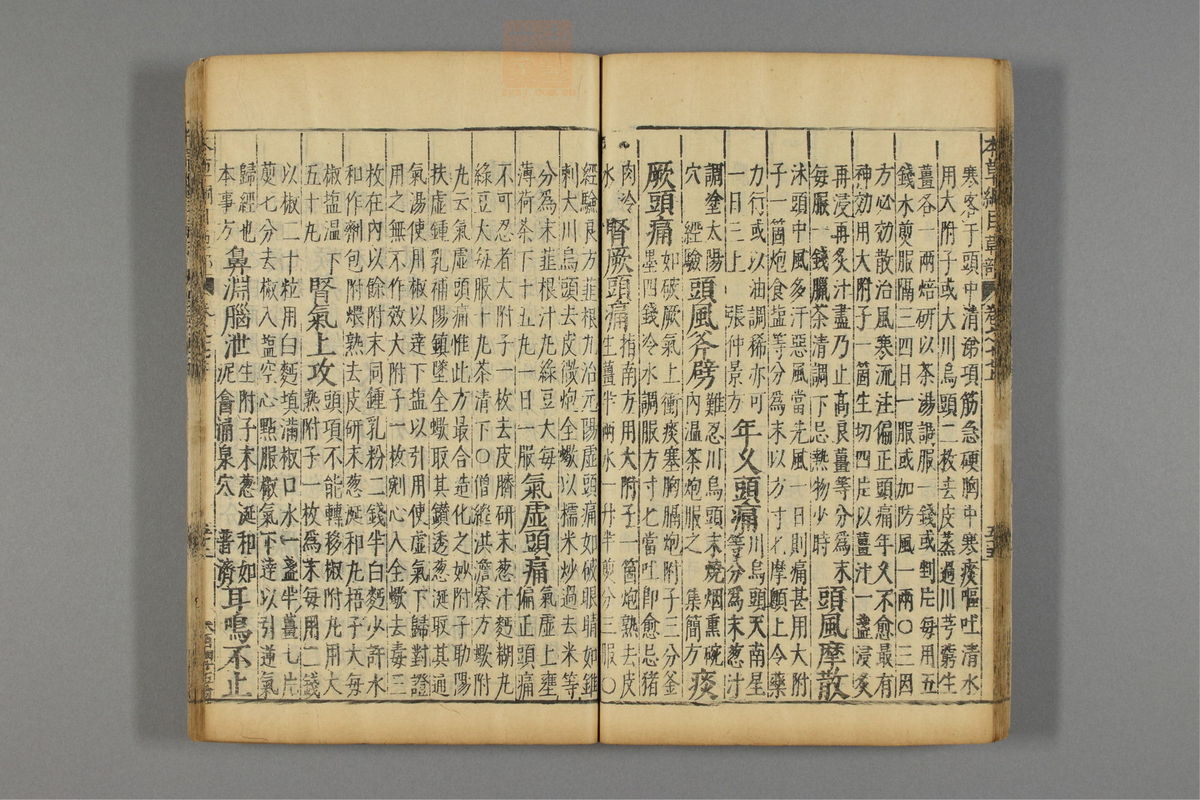 寒客于頭中清涕項筋急硬胸中寒痰嘔吐清水
用大附子或大川烏頭二枚去皮蒸過川芎藭生
薑各一兩焙研以茶湯調服一錢或剉片每用五
錢水煎服隔三四日一服或加防風一兩〇三因
方必効散治風寒流注偏正頭痛年久不愈最有
神効用大附子一箇生切四片以薑汁一盞浸炙
再浸再炙汁盡乃止高良薑等分爲末
每服一錢臘茶清調下忌熱物少時 頭風摩散
沐頭中風多汗惡風當先風一日則痛甚用大附
子一箇炮食塩等分爲末以方寸匕摩顖上令藥
力行或以油調稀亦可
一日三上 張仲景方 年久頭痛 川烏頭天南星等分爲末葱汁
調塗太陽穴 經驗 頭風斧劈 難忍川烏頭末燒烟熏碗内温茶炮服之 集簡方 痰
厥頭痛 如破厥氣上衝痰塞胸膈炮附子三分釜墨四錢冷水調服方寸匕當吐即愈忌猪
肉冷水 腎厥頭痛 指南方用大附子一箇炮熟去皮生薑半兩水一升半煎分三服〇
經驗良方韮根丸治元陽虛頭痛如破眼睛如錐
刺大川烏頭去皮微炮全蠍以糯米炒過去米等
分爲末韮根汁丸綠豆大每
薄荷茶下十五丸一日一服 氣虛頭痛 氣虛上壅偏正頭痛
不可忍者大附子一枚去皮臍研末葱汁麪糊丸
綠豆大每服十丸茶清下〇僧繼洪澹寮方蠍附
丸云氣虛頭痛惟此方最合造化之妙附子助陽
扶虛鍾乳補陽鎮墜全蠍取其鑽透葱涎取其通
氣湯使用椒以達下塩以引用使虛氣下歸對證
用之無不作效大附子一枚剜心入全蠍去毒三
枚在内以餘附末同鍾乳粉二錢半白麪少許水
和作劑包附煨熟去皮研末葱涎和丸梧子大每
椒塩温下五十丸 腎氣上攻 頭項不能轉移椒附丸用大熟附子一枚爲末每用二錢
以椒二十粒用白麪填滿椒口水一盞半薑七片
煎七分去椒入塩空心點服椒氣下達以引逆氣
歸經也
本事方 鼻淵腦泄 生附子末葱涎和如泥罯涌泉穴 普濟 耳鳴不止